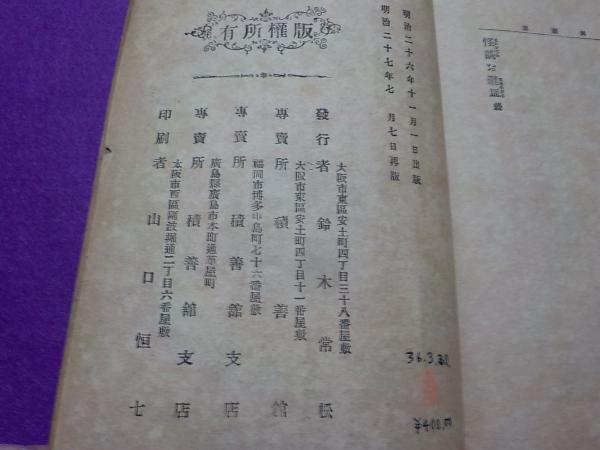 明治二十六年十一月一日出版
明治二十七年七月七日再版
版權所有
大阪市東區安土町四丁目三十八番屋敷
發行者 鈴木常松
大阪市東區安土町四丁目十一番屋敷
專賣所 積善館
福岡市博多中島町七十六番屋敷
專賣所 積善館支店
廣島縣廣島市本町通革屋町
專賣所 積善館支店
大阪市西區阿波堀通二丁目六番屋敷
印刷者 山口恒七
36.3.